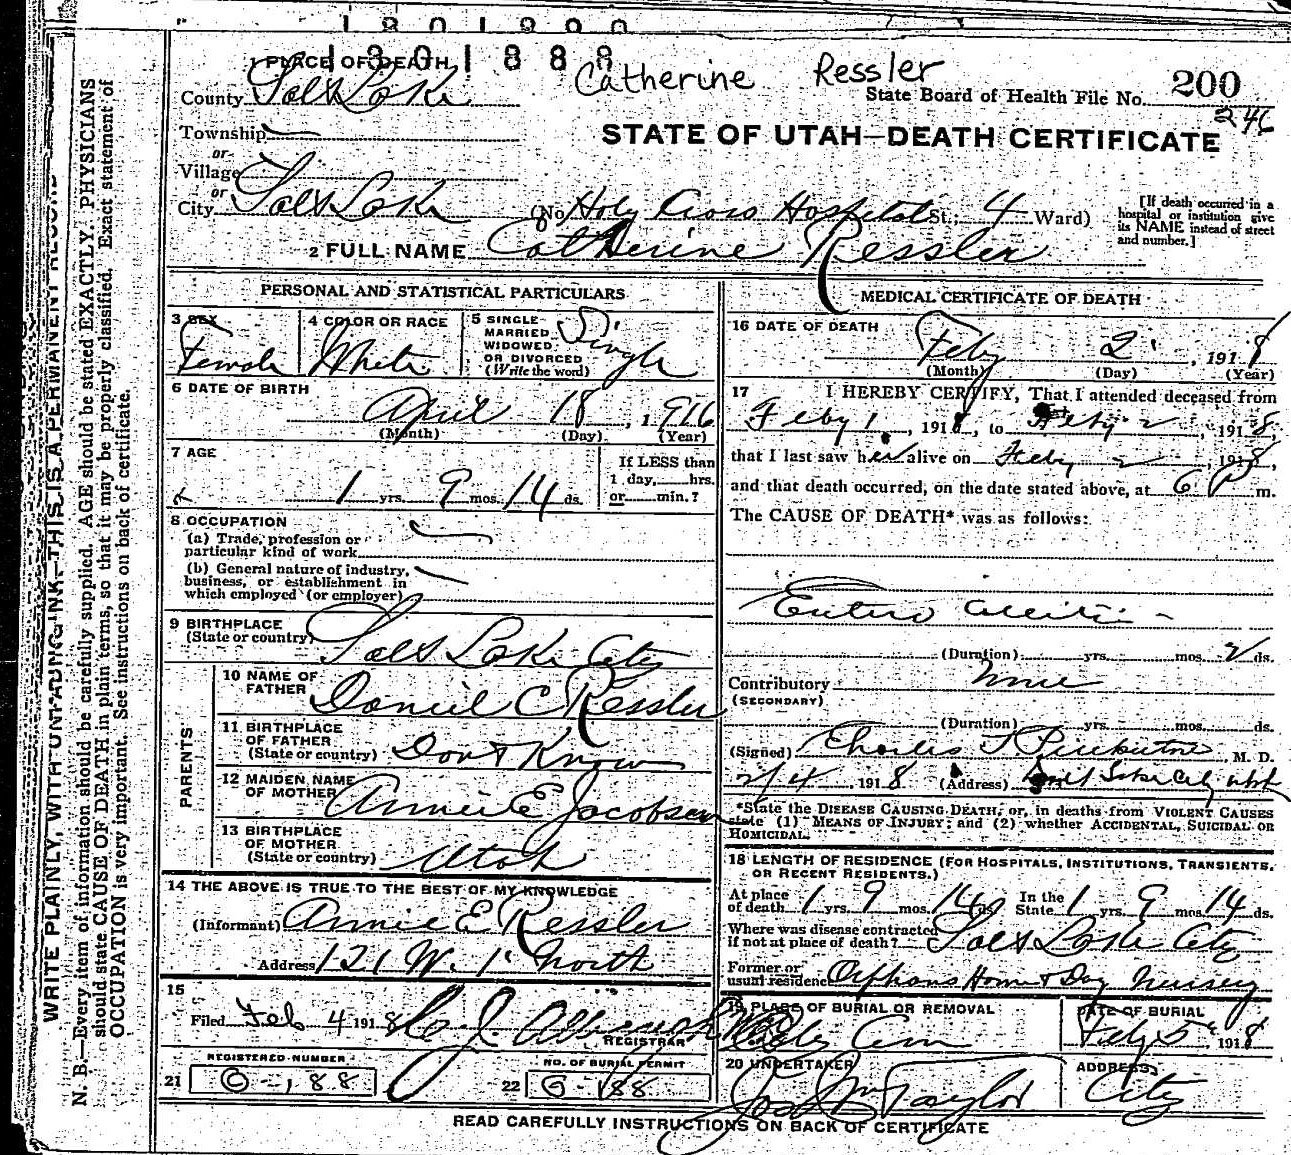 1801888
1 PLACE OF DEATH
Catherine Ressler
County Salt Lake
State Board of Health File No. 200
246
Township
STATE OF UTAH—DEATH CERTIFICATE
or
Village
or
City Salt Lake (No. Holy Cross Hospital St.; 4 Ward)
[If death occurred in a
hospital or institution give
its NAME instead of street
and number.]
2 FULL NAME Catherine Ressler
PERSONAL AND STATISTICAL PARTICULARS
3 SEX Female
4 COLOR OR RACE White
5 SINGLE
MARRIED
WIDOWED
OR DIVORCED
(Write the word) Single
6 DATE OF BIRTH
April 18, 1916
(Month) (Day) (Year)
7 AGE
1 yrs. 9 mos. 14 ds.
If LESS than
1 day, hrs.
or min.?
8 OCCUPATION
(a) Trade, profession or
particular kind of work
(b) General nature of industry,
business, or establishment in
which employed (or employer)
9 BIRTHPLACE
(State or country) Salt Lake City
PARENTS
10 NAME OF
FATHER Daniel C Ressler
11 BIRTHPLACE
OF FATHER
(State or country) Don't Know
12 MAIDEN NAME
OF MOTHER Annie E Jacobsen
13 BIRTHPLACE
OF MOTHER
(State or country) Utah
14 THE ABOVE IS TRUE TO THE BEST OF MY KNOWLEDGE
(Informant) Annie E Ressler
Address 121 W. 1 North
15
Filed Feb 4 1918
REGISTRAR
REGISTERED NUMBER
21 O-188
NO. OF BURIAL PERMIT
22 O-188
MEDICAL CERTIFICATE OF DEATH
16 DATE OF DEATH
Feby 2, 1918
(Month) (Day) (Year)
17 I HEREBY CERTIFY, That I attended deceased from
Feby 1, 1918, to Feby 2, 1918,
that I last saw her alive on Feby 2, 1918,
and that death occurred, on the date stated above, at 6 P m.
The CAUSE OF DEATH* was as follows:
Entero Colitis
(Duration) yrs. mos. 2 ds.
Contributory None
(SECONDARY)
(Duration) yrs. mos. ds.
(Signed) Charles, M. D.
2/4, 1918 (Address) Salt Lake City Utah
*State the DISEASE CAUSING DEATH, or, in deaths from VIOLENT CAUSES
state (1) MEANS OF INJURY; and (2) whether ACCIDENTAL, SUICIDAL OR
HOMICIDAL.
18 LENGTH OF RESIDENCE (FOR HOSPITALS, INSTITUTIONS, TRANSIENTS,
OR RECENT RESIDENTS.)
At place
of death 1 yrs. 9 mos. 14 ds. In the
State 1 yrs. 9 mos. 14 ds.
Where was disease contracted
if not at place of death? Salt Lake City
Former or
usual residence Orphans Home & Day Nursery
19 PLACE OF BURIAL OR REMOVAL
City Cem
DATE OF BURIAL
Feby 5, 1918
20 UNDERTAKER
Jos Wm Taylor
ADDRESS
City
READ CAREFULLY INSTRUCTIONS ON BACK OF CERTIFICATE
WRITE PLAINLY, WITH UNFADING INK—THIS IS A PERMANENT RECORD
N. B.—Every item of information should be carefully supplied. AGE should be stated EXACTLY. PHYSICIANS
should state CAUSE OF DEATH in plain terms, so that it may be properly classified. Exact statement of
OCCUPATION is very important. See instructions on back of certificate.